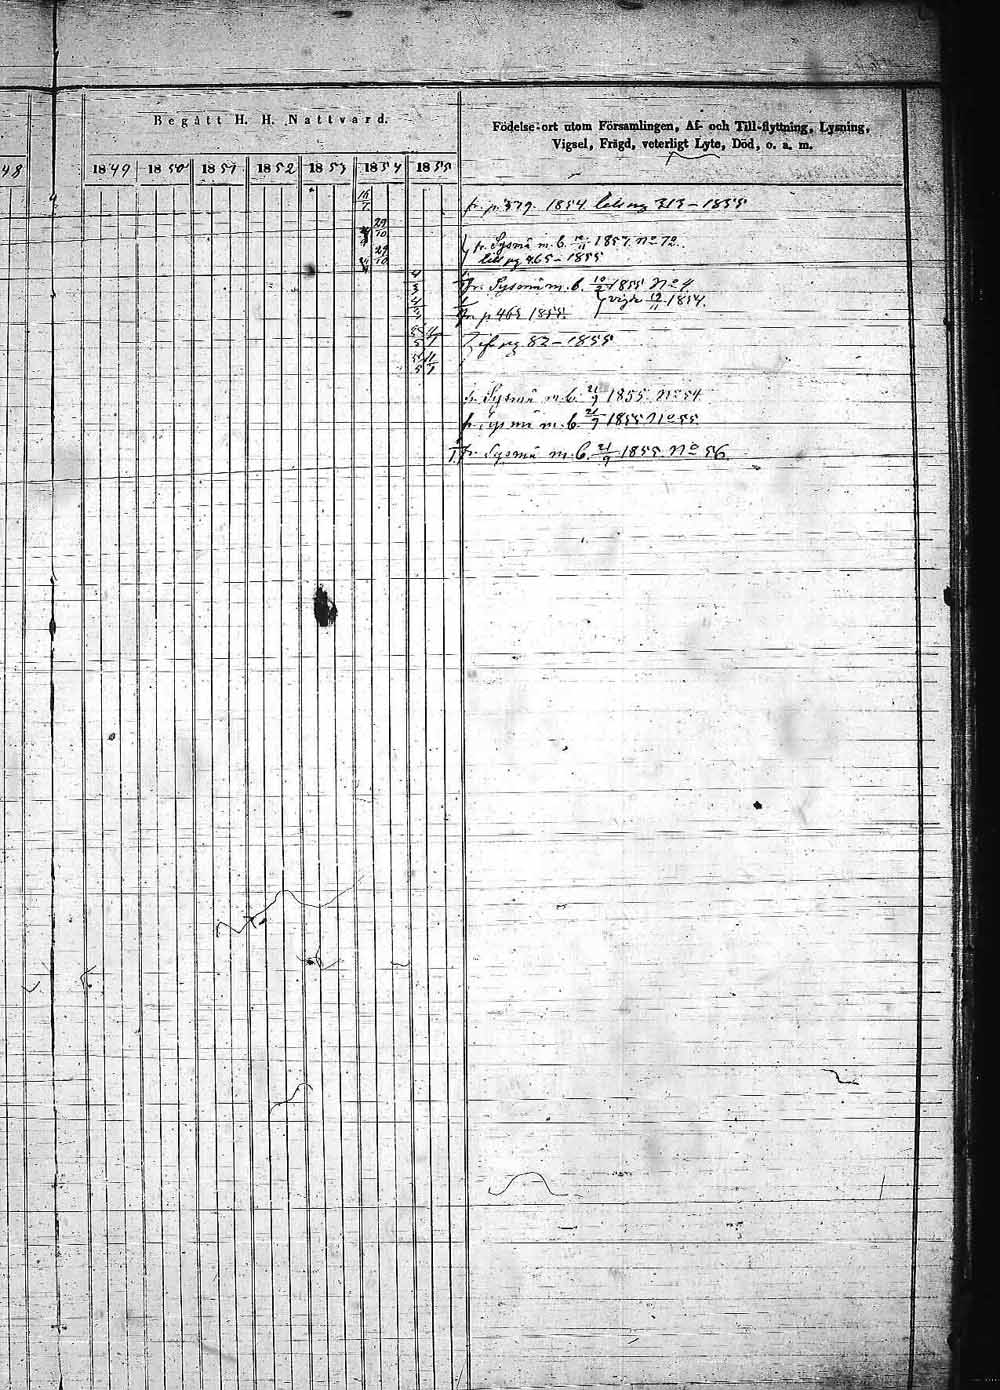 Begått H. H. Nattvard.
Födelse-ort utom Församlingen, Af- och Till-flyttning, Lysning,
Vigsel, Frägd, veterligt Lyte, Död, o. a. m.
48 1849 1850 1851 1852 1853 1854 1855
fr. p. 379. 1854. till pag 313 - 1855
29/10
fr. Sysmä m. b. 12/11 1854. No 72.
29/10
till pag 465 - 1855
fr. Sysmä m. b. 10/2 1855 No 4
vigde 19/11 1854.
fr. p 465 1855.
pag 82 - 1855
fr. Sysmä m. b. 21/9 1855. No 54
fr. Sysmä m. b. 21/9 1855 No 55
fr. Sysmä m. b. 21/9 1855. No 56.